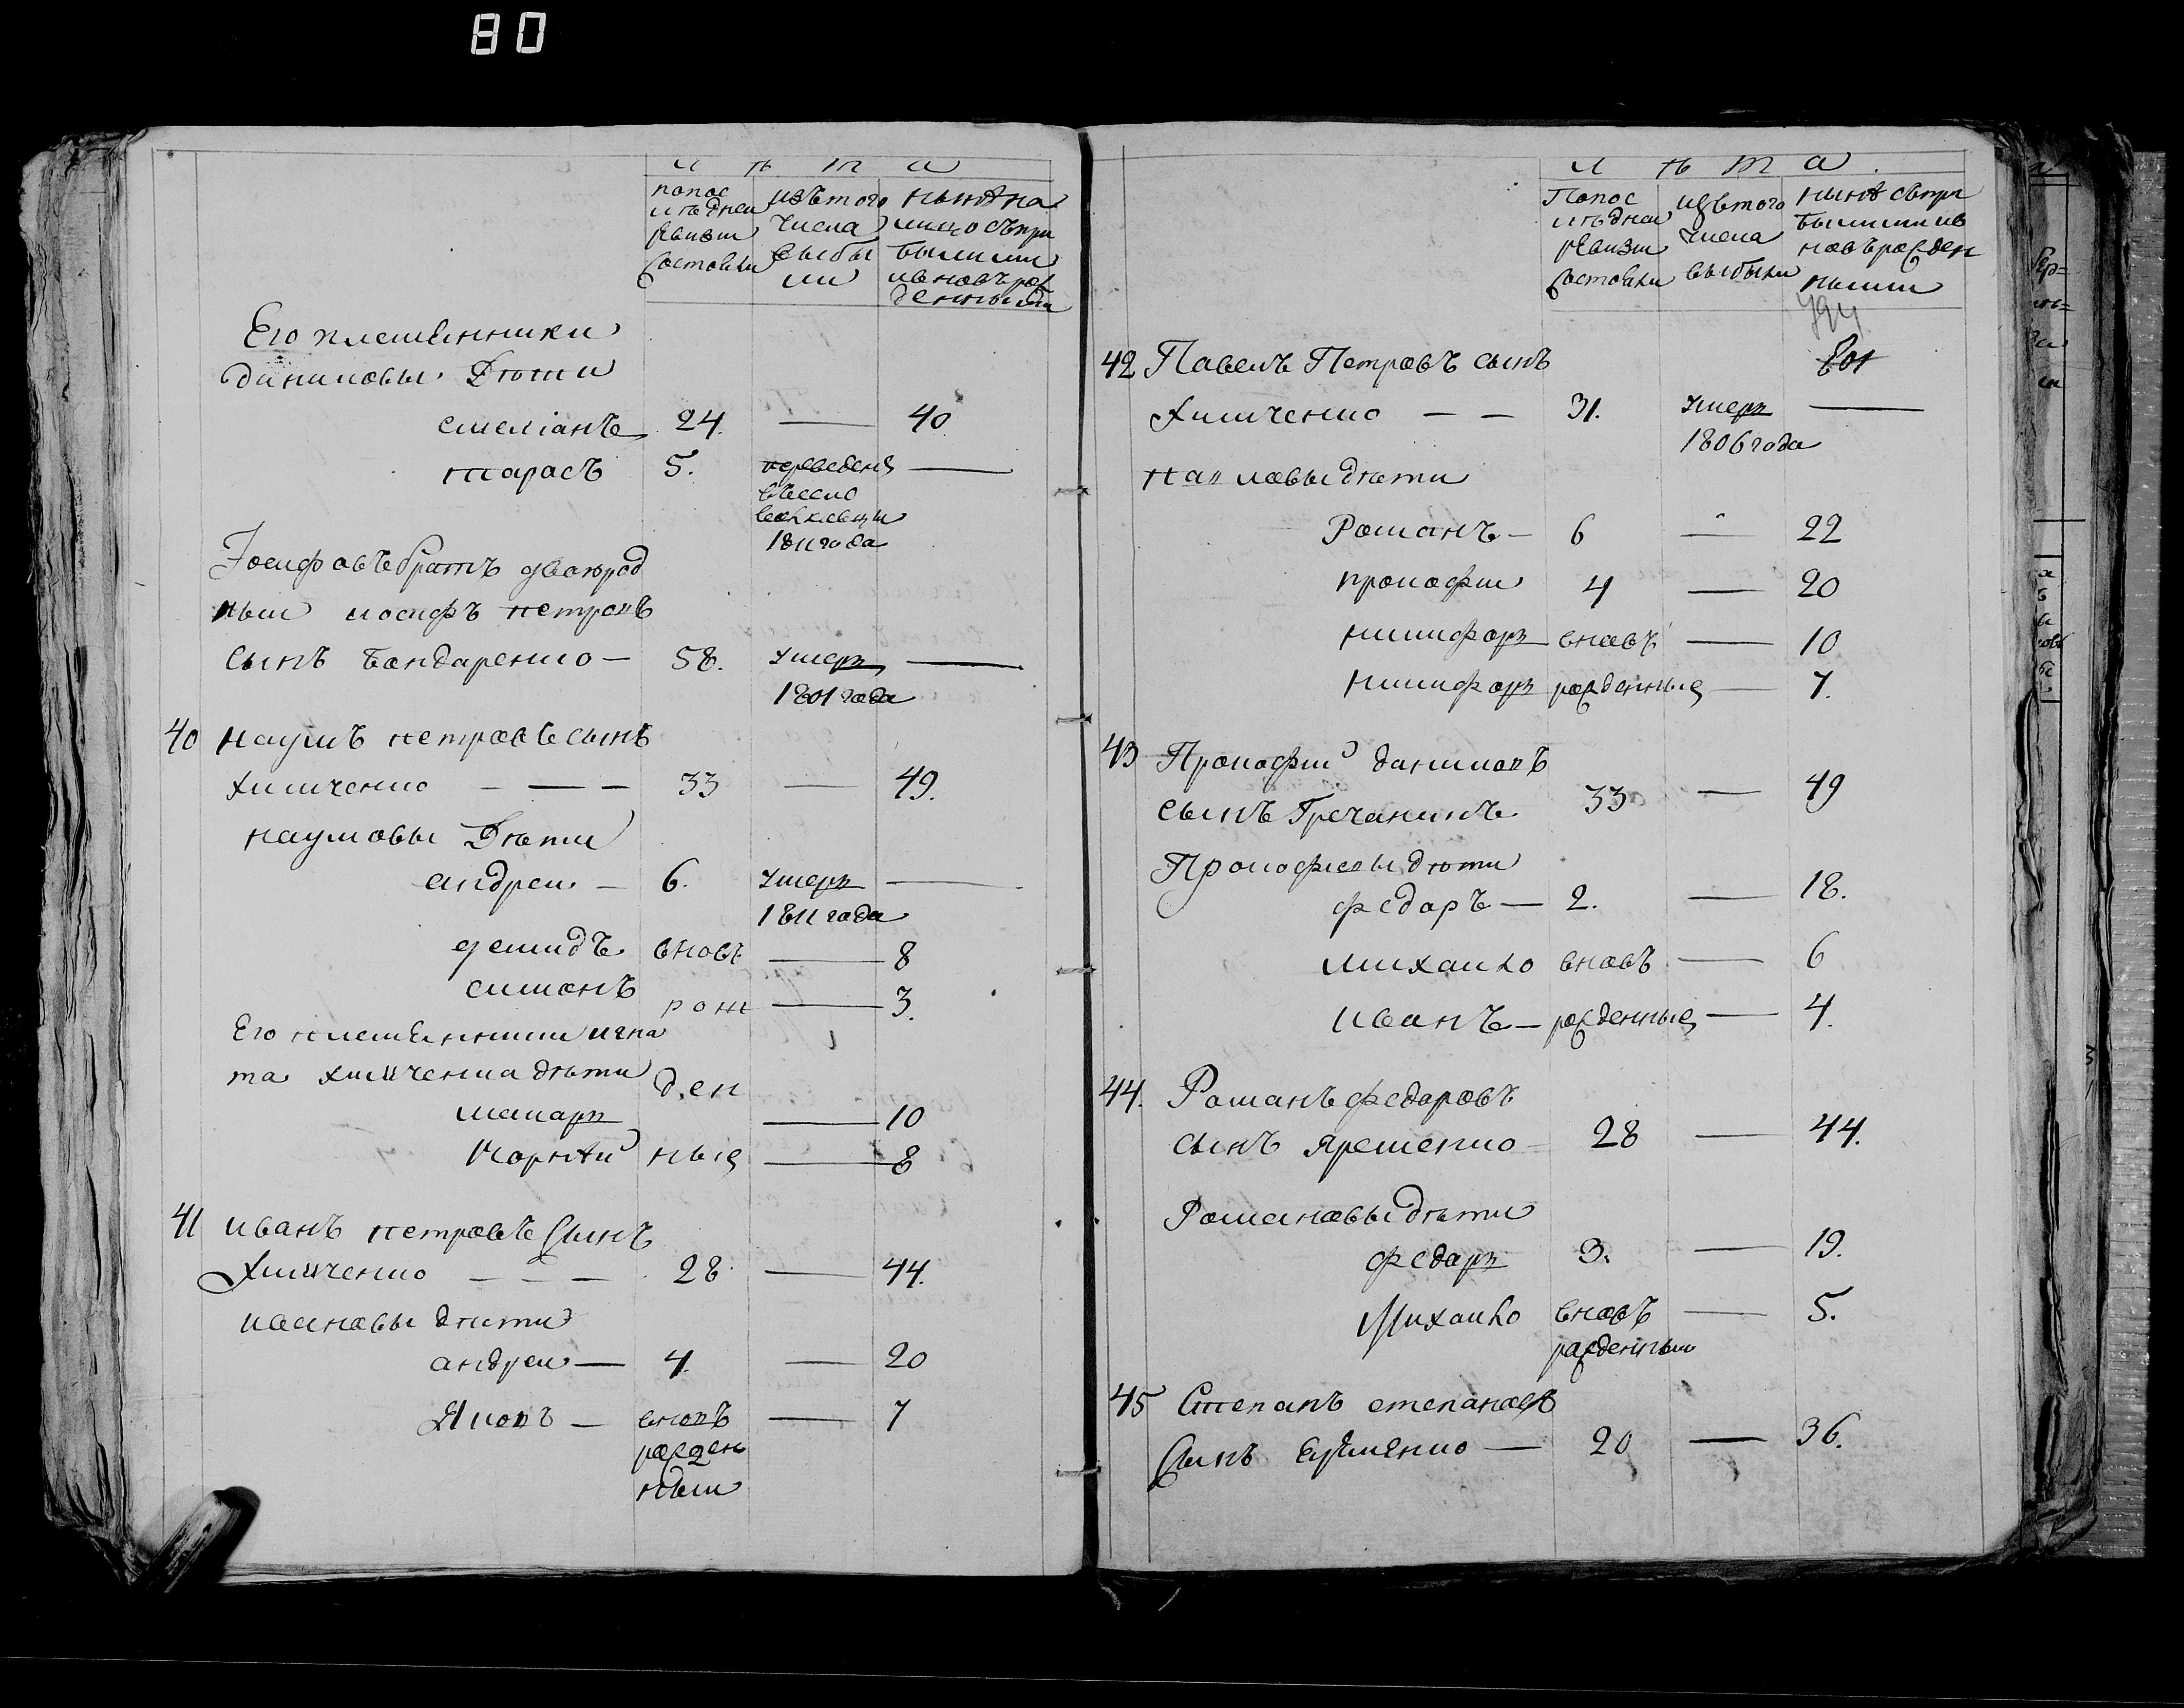 80
л ѣ т а
по пос
лѣдней
ревизіи
состояли
изъ того
числа
выбы
ли
нынѣ на
лицо съ при
былыми
и вновь рож
денными
Его племенники
даниловы Дѣти
емеліанъ 24. — 40
тарасъ 5. переведенъ —
въ село
1811 года
Іосифовъ братъ двоюрод
ный иосифъ петровъ
сынъ бондаренко — 58. умеръ —
1801 года
40 наумъ петровъ сынъ
химченко — — — 33 — 49.
наумовы Дѣти
андреи — 6. умеръ —
1811 года
демидъ вновь — 8
симонъ рож — 3.
Его племенники игна
та химченка дѣти ден
макаръ — 10
Корнѣй ные — 8
41 иванъ петровъ Сынъ
Химченко — — — 28 — 44.
ивановы дѣти
андреи — 4. — 20
Яковъ — вновь — 7
рожден
ныи
л ѣ т а
По пос
лѣдней
ревизіи
состояли
изъ того
числа
выбыли
нынѣ съ при
былыми и в
новь рожден
ными
801
42 Павелъ Петровъ сынъ
Химченко — — 31. умеръ —
1806 года
павловы дѣти
Романъ — 6 — 22
прокофіи 4 — 20
никифоръ вновь — 10
никифоръ рожденные — 7.
43 Прокофій даниловъ
сынъ Гречанинъ 33 — 49
Прокофіевы дѣти
федоръ — 2. — 18.
михаило вновь — 6
иванъ — рожденные — 4.
44. Романъ федоровъ
сынъ яременко — 28 — 44.
Романовы дѣти
федоръ 3. — 19.
Михаило вновь — 5.
рожденныи
45 Степанъ степановъ
Сынъ — 20 — 36.